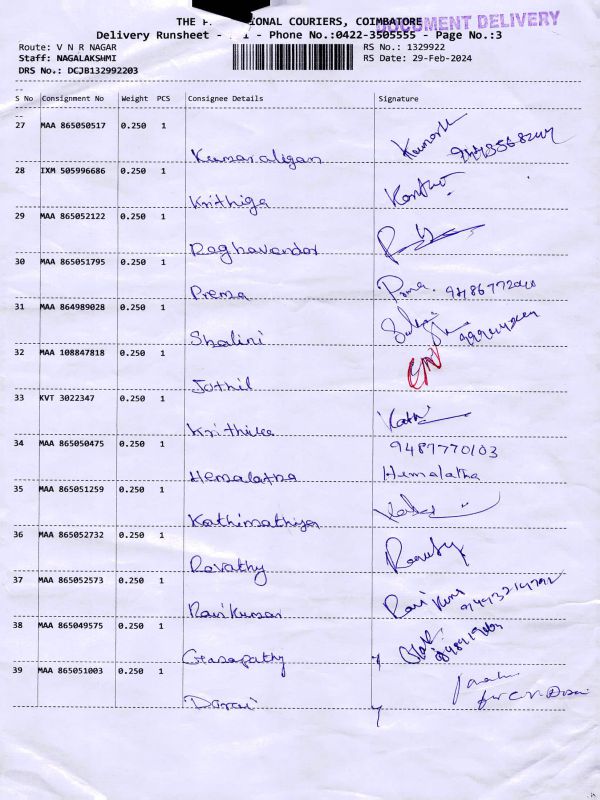 THE P IONAL COURIERS, COIMBATORE
DOCUMENT DELIVERY
Delivery Runsheet - - Phone No.:0422-3505555 - Page No.:3
Route: V N R NAGAR RS No.: 1329922
Staff: NAGALAKSHMI RS Date: 29-Feb-2024
DRS No.: DCJB132992203
S No Consignment No Weight PCS Consignee Details Signature
27 MAA 865050517 0.250 1
Kumaraligan
28 IXM 505996686 0.250 1
Krithiga
29 MAA 865052122 0.250 1
Raghavendar
30 MAA 865051795 0.250 1
Prema Prma.
31 MAA 864989028 0.250 1
Shalini
32 MAA 108847818 0.250 1
Jothil
33 KVT 3022347 0.250 1
Krithika
34 MAA 865050475 0.250 1 9487770103
Hemalatha Hemalatha
35 MAA 865051259 0.250 1
Kathimathiyan
36 MAA 865052732 0.250 1
Revathy
37 MAA 865052573 0.250 1
Ravikumar Ravi Kumr
38 MAA 865049575 0.250 1
39 MAA 865051003 0.250 1
Dorai